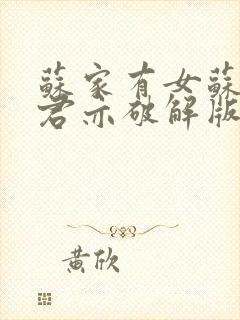 蘇家有女蘇
君亦破解版
黃欣